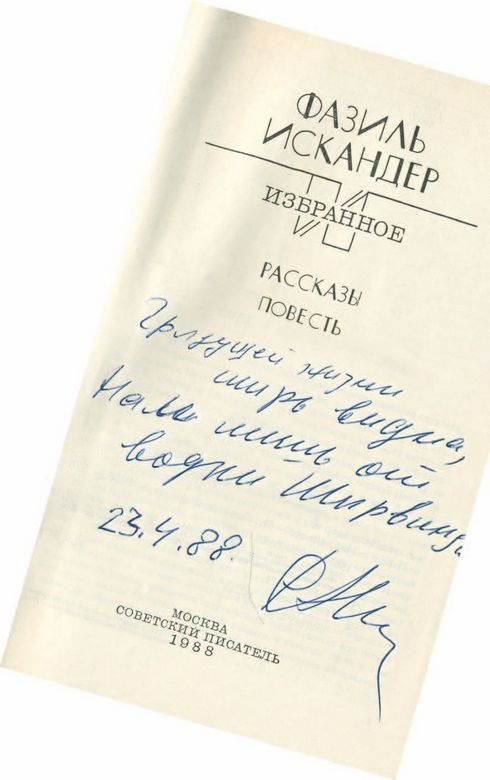 ФАЗИЛЬ
ИСКАНДЕР
ИЗБРАННОЕ
РАССКАЗЫ
ПОВЕСТЬ
Грядущей жизни
ширь видна,
Нам лишь от
водки Ширвинда
23.4.88.
МОСКВА
СОВЕТСКИЙ ПИСАТЕЛЬ
1988